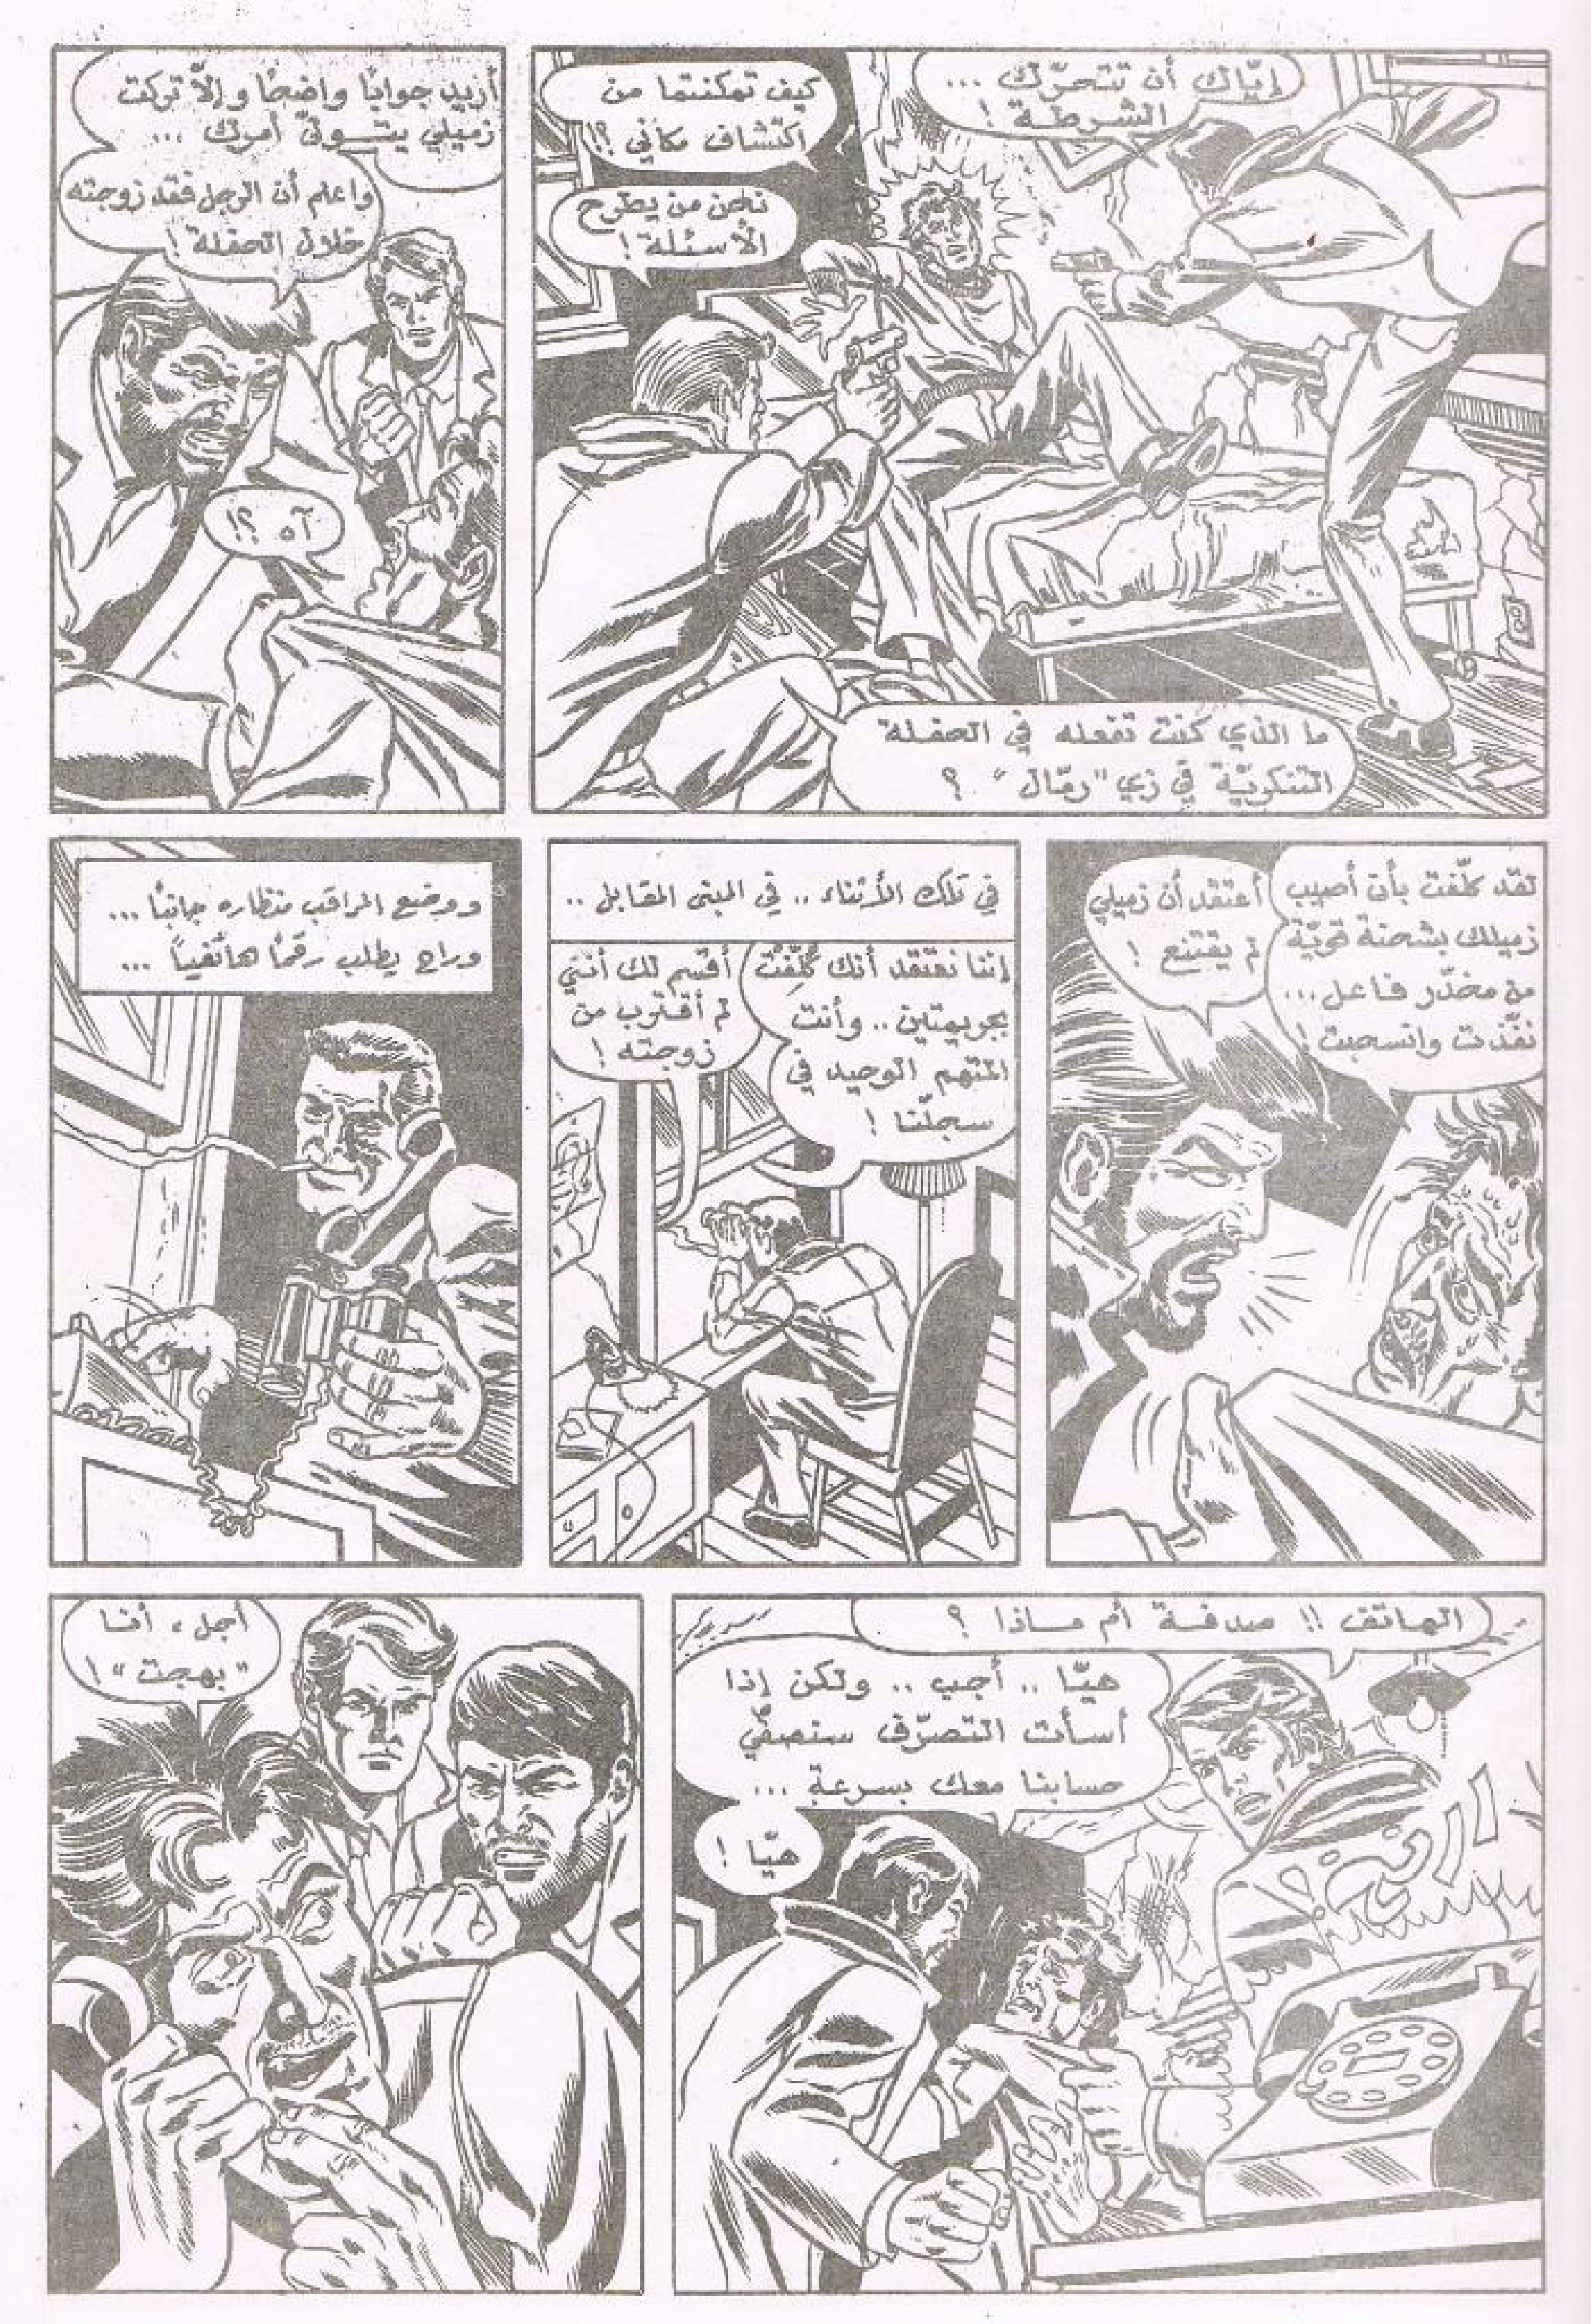 إيّاك أن تتحرّك ...
الشرطة !
كيف تمكنتما من
اكتشاف مكاني ؟!
نحن من يطرح
الأسئلة !
ما الذي كنت تفعله في الحفلة
التنكريّة في زي "رمّال" ؟
أريد جوابًا واضحًا وإلاّ تركت
زميلي يتولّى أمرك ...
واعلم أن الرجل فقد زوجته
خلال الحفلة !
آه ؟!
لقد كلّفت بأن أصيب
زميلك بشحنة قويّة
من مخدّر فاعل ...
نفّذت وانسحبت !
أعتقد أن زميلي
لم يقتنع !
في تلك الأثناء .. في المبنى المقابل ..
إننا نعتقد أنك كُلِّفْتَ
بجريمتين .. وأنت
المتهم الوحيد في
سجلّنا !
أقسم لك أنني
لم أقترب من
زوجته !
ووضع المراقب منظاره جانبًا ...
وراح يطلب رقمًا هاتفيًا ...
الهاتف !! صدفة أم ماذا ؟
هيّا .. أجب .. ولكن إذا
أسأت التصرّف سنصفّي
حسابنا معك بسرعة ...
هيّا !
أجل ، أنا
"بهجت" !